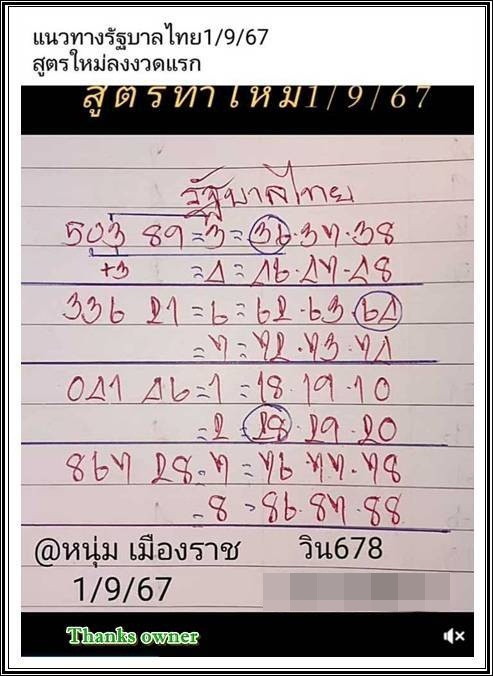 แนวทางรัฐบาลไทย1/9/67
สูตรใหม่ลงงวดแรก
สูตรทำใหม่1/9/67
รัฐบาลไทย
503 89 =3= 36.37.38
+3 =4= 46.47.48
336 21 =6= 62.63.64
=7= 72.73.74
041 46 =1= 18.19.10
=2= 28.29.20
867 28=7= 76.77.78
=8= 86.87.88
@หนุ่ม เมืองราช วิน678
1/9/67
Thanks owner